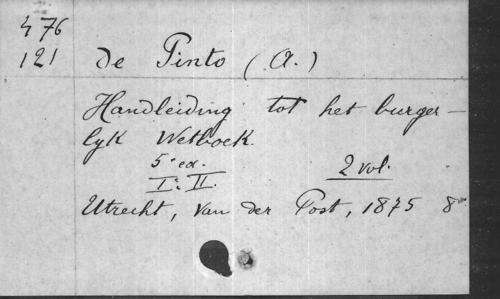 476
121 de Pinto (A.)
Handleiding tot het burger-
lyk Wetboek.
5e ed. 2 vol.
I: II.
Utrecht, van der Post, 1875 8o